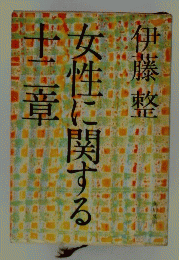 伊藤整
女性に関する
十二章